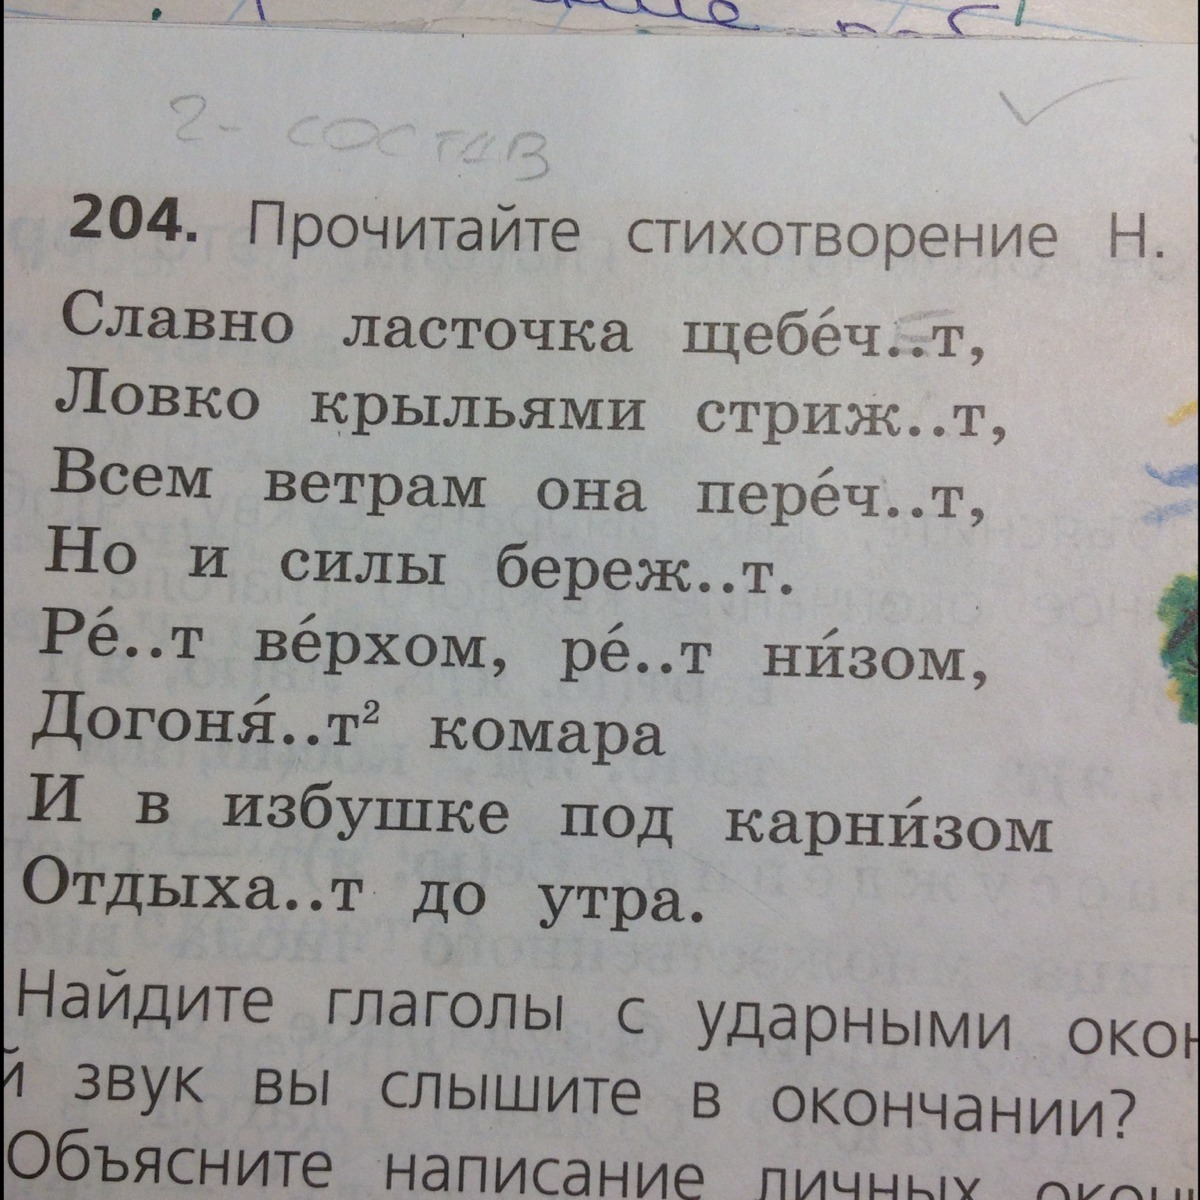 2- состав
204. Прочитайте стихотворение Н.
Славно ласточка щебе́ч..т,
Ловко крыльями стриж..т,
Всем ветрам она пере́ч..т,
Но и силы береж..т.
Ре́..т ве́рхом, ре́..т ни́зом,
Догоня́..т² комара
И в избушке под карни́зом
Отдыха..т до утра.
Найдите глаголы с ударными окон
й звук вы слышите в окончании?
Объясните написание личных окон